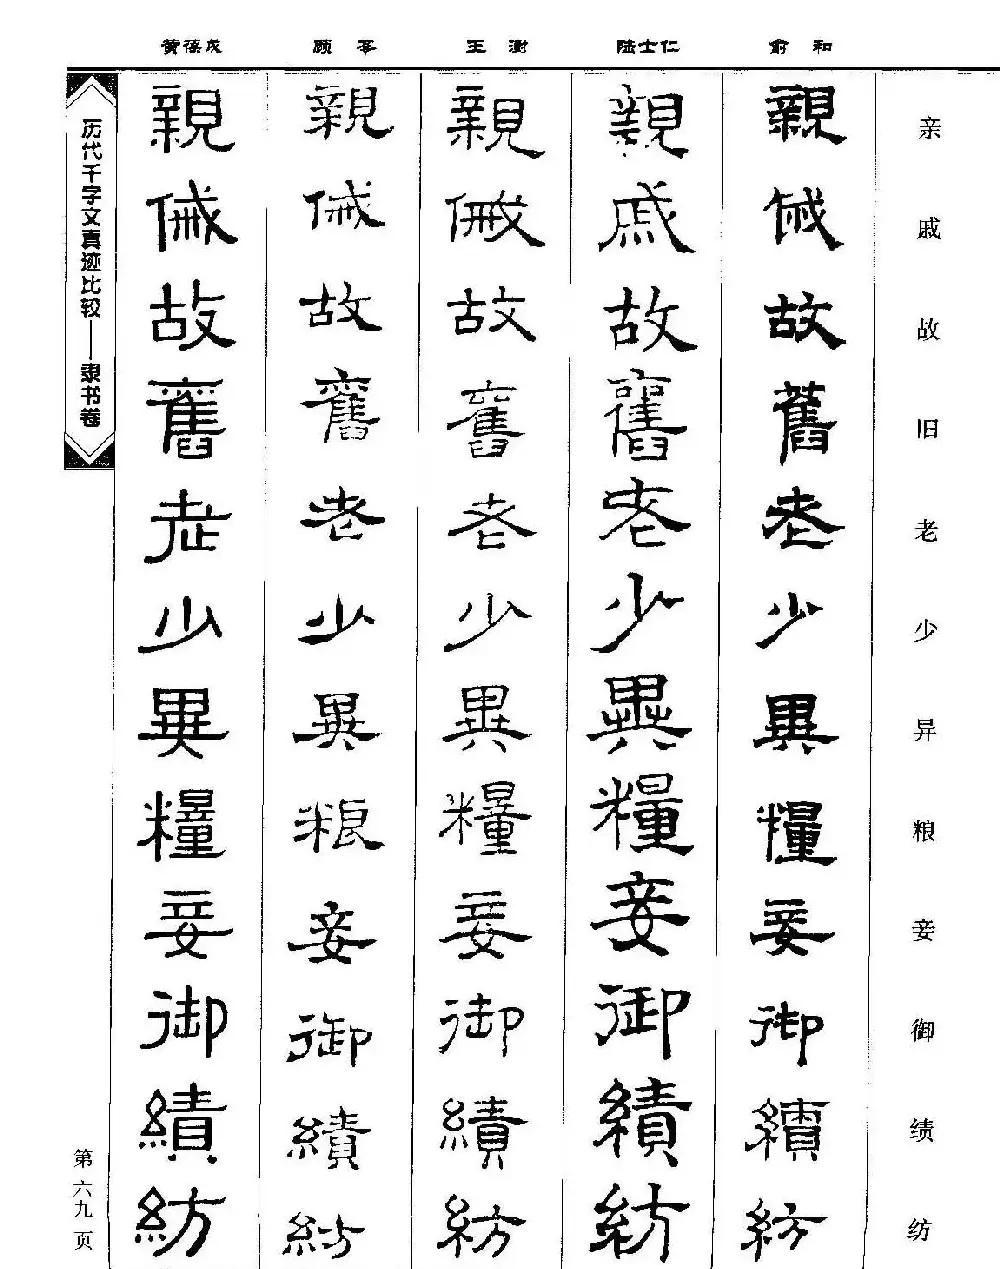 黄葆戉 顾苓 王澍 陆士仁 俞和
亲戚故旧老少异粮妾御绩纺
親戚故舊老少異糧妾御績紡
親戚故舊老少異糧妾御績紡
親戚故舊老少異糧妾御績紡
親戚故舊老少異粮妾御績紡
親戚故舊老少異糧妾御績紡
历代千字文真迹比较——隶书卷
第六九页